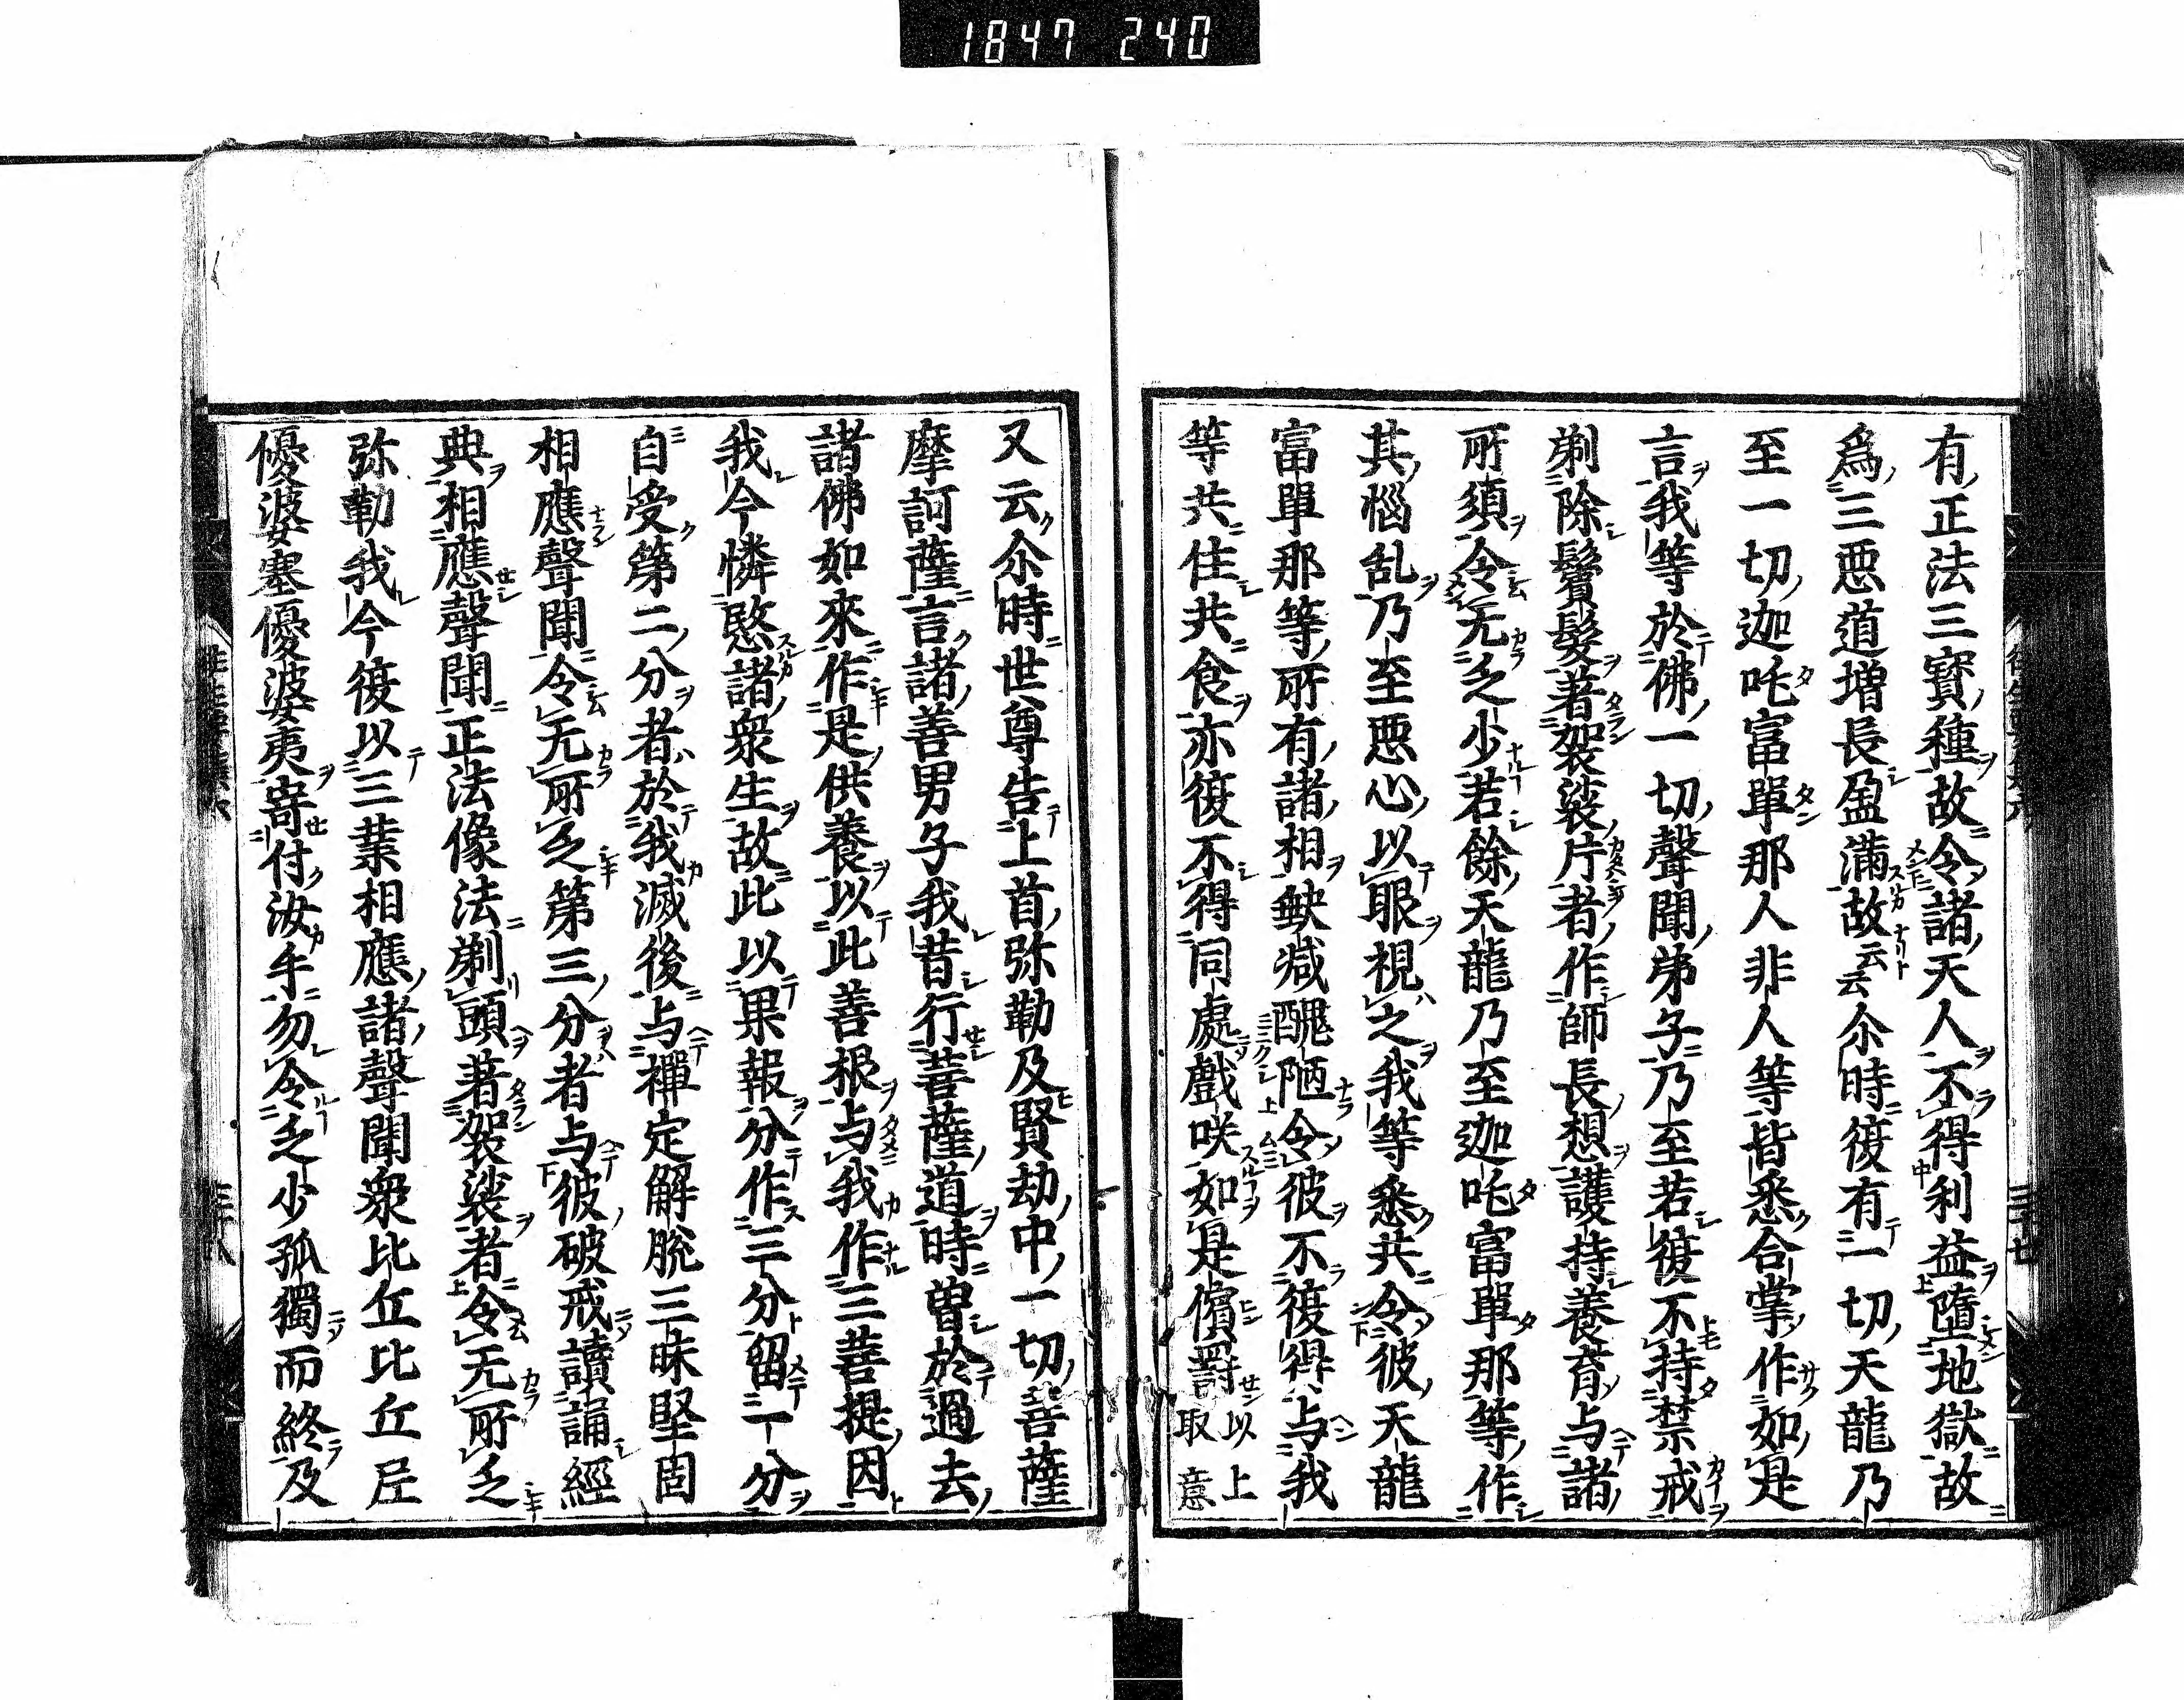 1847 240
有正法三寶種故令諸天人不得利益墮地獄故
爲三悪道増長盈滿故云云尒時復有一切天龍乃
至一切迦吒富單那人非人等皆悉合掌作如是
言我等於佛一切聲聞弟子乃至若復不持禁戒
剃除鬢髮著袈裟片者作師長想護持養育与諸
所須令无乏少若餘天龍乃至迦吒富單那等作
其惱乱乃至悪心以眼視之我等悉共令彼天龍
富單那等所有諸相缺减醜陋令彼不復得与我
等共住共食亦復不得同處戲咲如是儐罰以上取意
又云尒時世尊告上首弥勒及賢劫中一切菩薩
摩訶薩言諸善男子我昔行菩薩道時曽於過去
諸佛如來作是供養以此善根与我作三菩提因
我今憐愍諸衆生故此以果報分作三分留一分
自受第二分者於我滅後与禪定解脱三昧堅固
相應聲聞令无所乏第三分者与彼破戒讀誦經
典相應聲聞正法像法剃頭著袈裟者令无所乏
弥勒我今復以三業相應諸聲聞衆比丘比丘尼
優婆塞優婆夷寄付汝手勿令乏少孤獨而終及